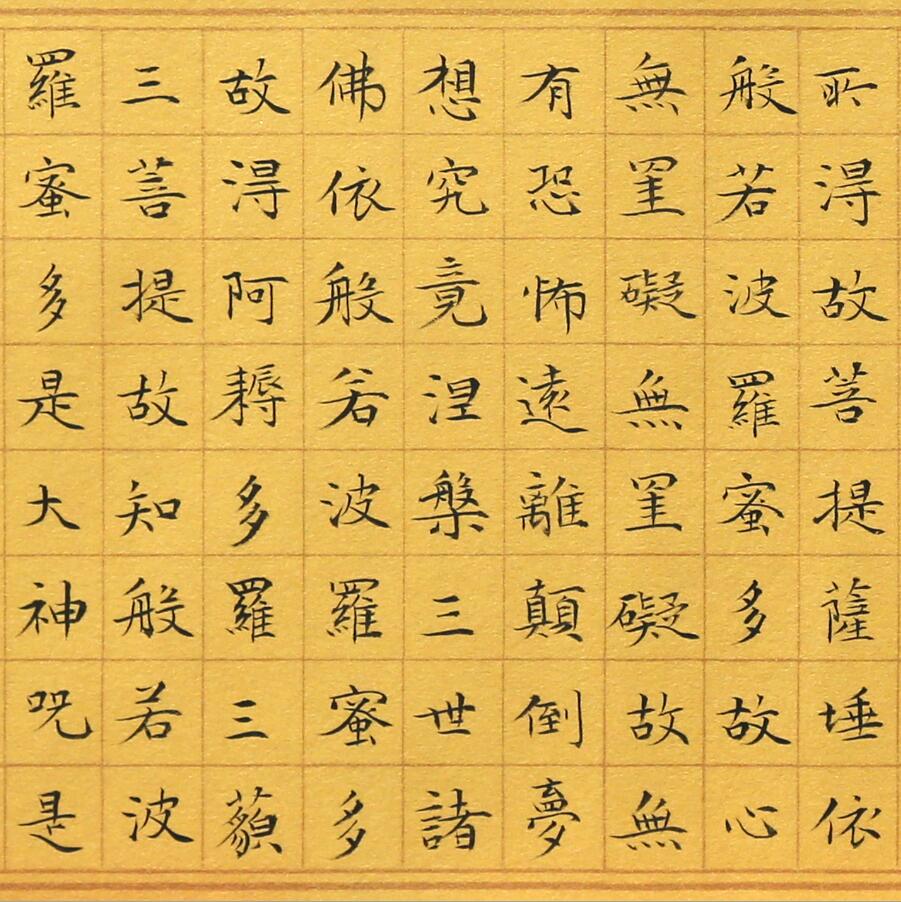 所得故菩提薩埵依
般若波羅蜜多故心
無罣礙無罣礙故無
有恐怖遠離顛倒夢
想究竟涅槃三世諸
佛依般若波羅蜜多
故得阿耨多羅三藐
三菩提故知般若波
羅蜜多是大神咒是